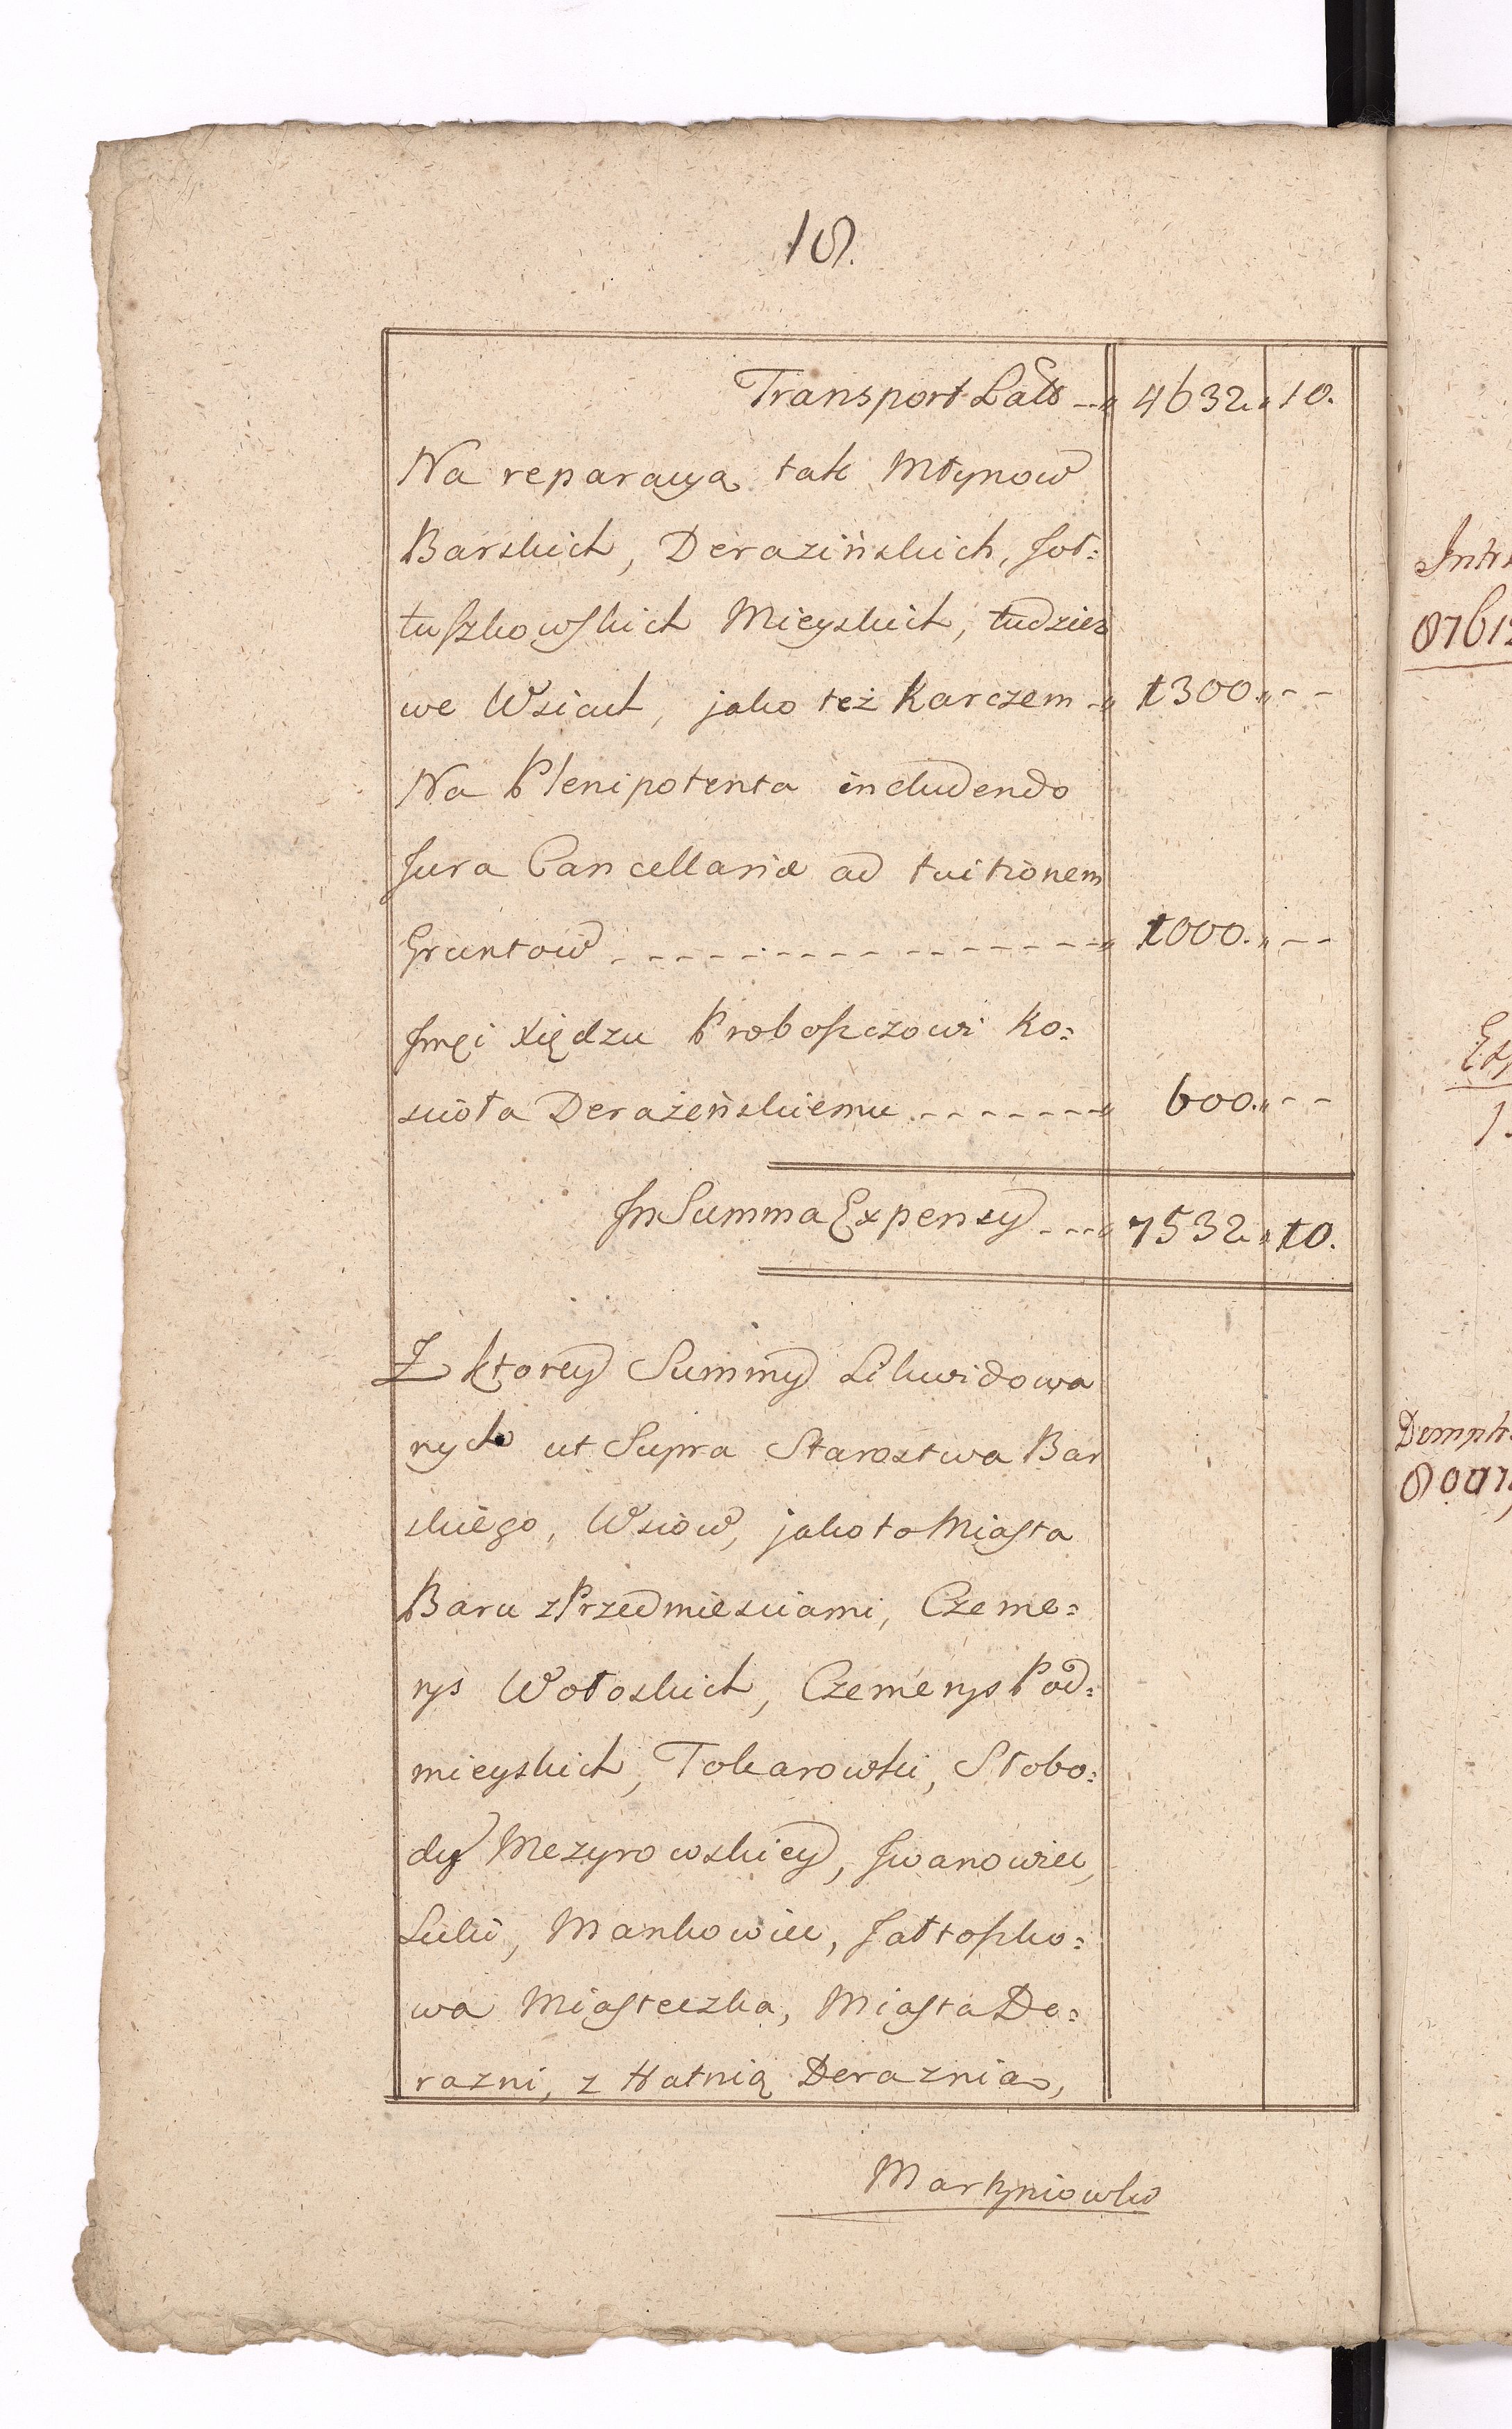 18.
Transport Latus --„ 4632 „ 10.
Na reparacyą tak Młynow
Barskich, Derazińskich, Joł=
tuszkowskich Mieyskich, tudzież
we Wsiach, jako też Karczem -„ 1300. „ - -
Na Plenipotenta includendo
Jura Cancellariæ ad tuitionem
Gruntow - - - - - - - - - - - - - - - -„ 1000. „ - -
Jmci Xiędzu Proboszczowi Ko=
scioła Derażeńskiemu - - - - - - -„ 600. „ - -
Jn Summa Expensy - - -„ 7532 „ 10.
Z ktorey Summy Likwidowa
nych ut Supra Starostwa Bar
skiego, Wsiow, jako to Miasta
Baru z Przedmiesciami, Czeme=
rys Wołoskich, Czemerys Pod=
mieyskich, Tokarowki, Słobo=
dy Mezyrowskiey, Jwanowiec,
Luki, Mankowiec, Jałtoszko=
wa Miasteczka, Miasta De=
razni, z Hatnią Deraznią,
Martyniowki
Intr
87612
Exp
1.
8001